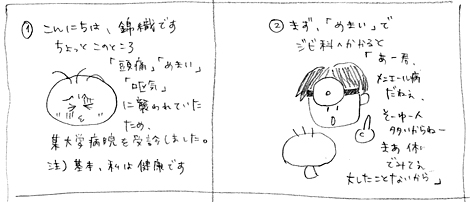 ① こんにちは、錦織です
ちょっとこのところ
「頭痛」「めまい」
「吐気」
に襲われていた
ため、
某大学病院を受診しました。
注) 基本、私は健康です
② まず、「めまい」で
ジビ科へかかると
「あー君、
メニエール病
だねぇ、
そーゆー人
多いからねー
まあ 休んでみてぇ
大したことないから」